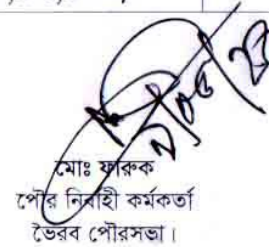 মোঃ ফারুক
পৌর নির্বাহী কর্মকর্তা
ভৈরব পৌরসভা।